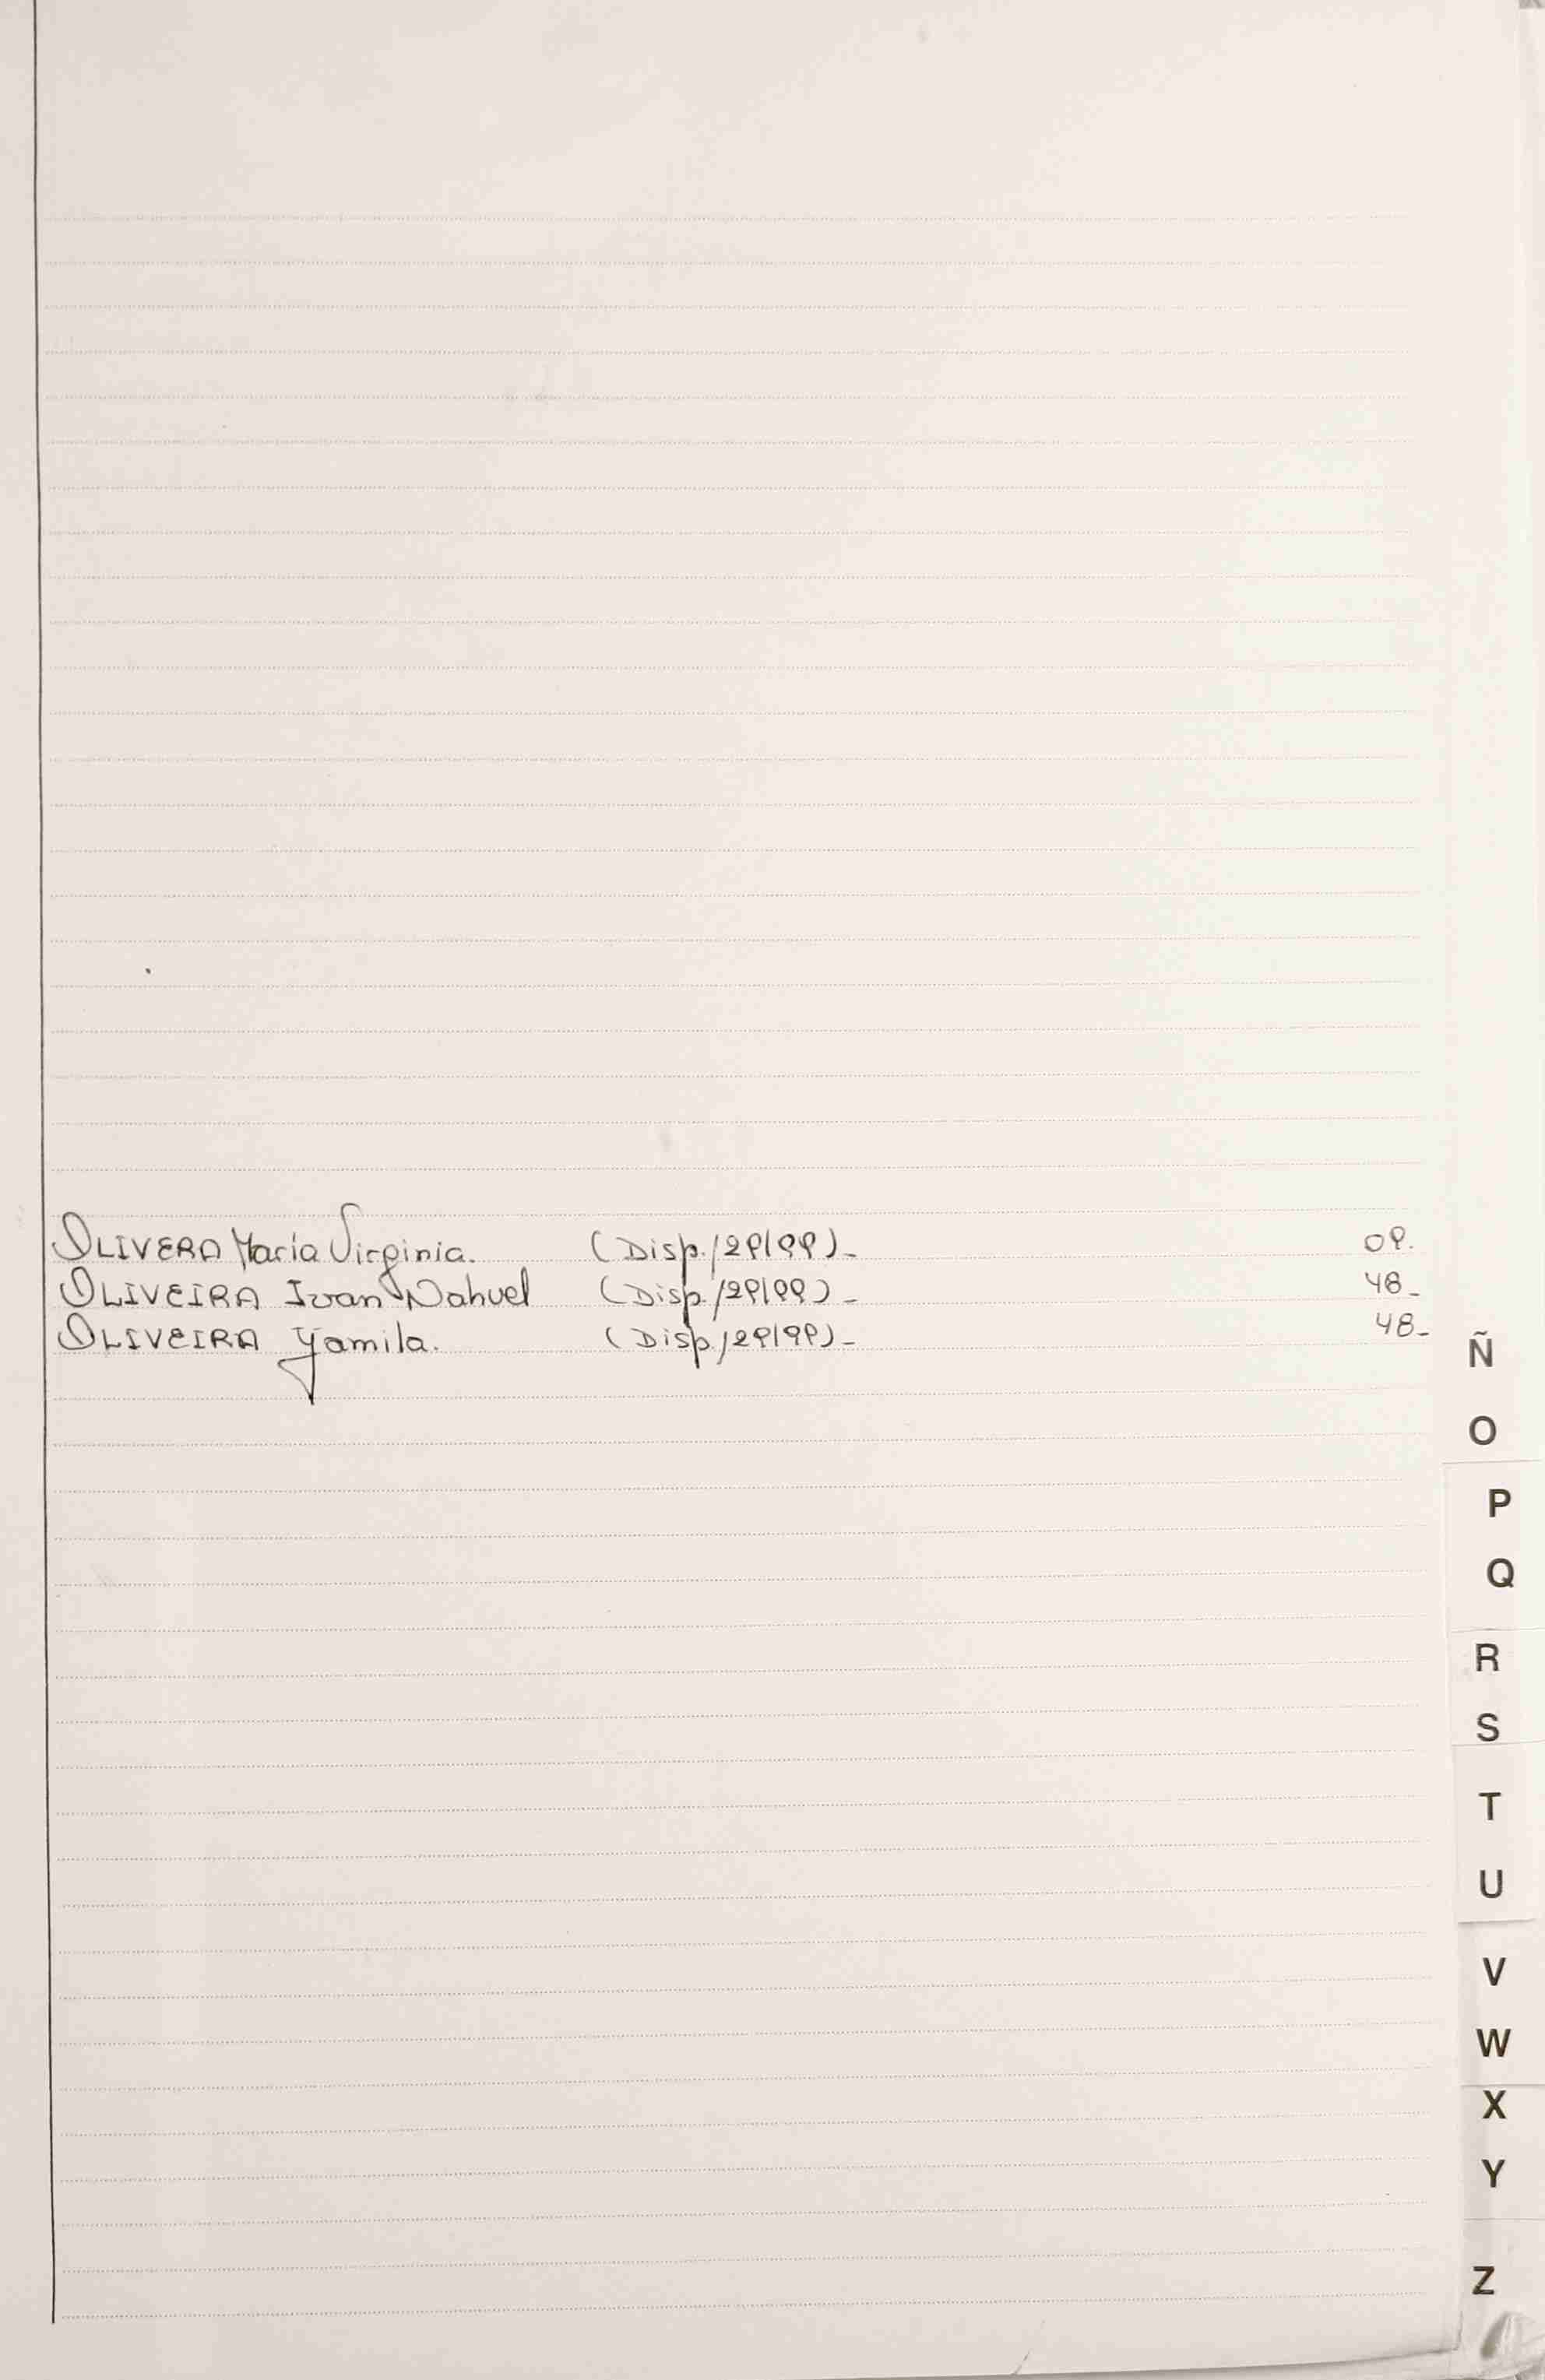 OLIVERA María Virginia. (Disp./29/99)- 09.
OLIVEIRA Ivan Nahuel (Disp./29/99)- 48-
OLIVEIRA Yamila. (Disp./29/99)- 48-
Ñ
O
P
Q
R
S
T
U
V
W
X
Y
Z